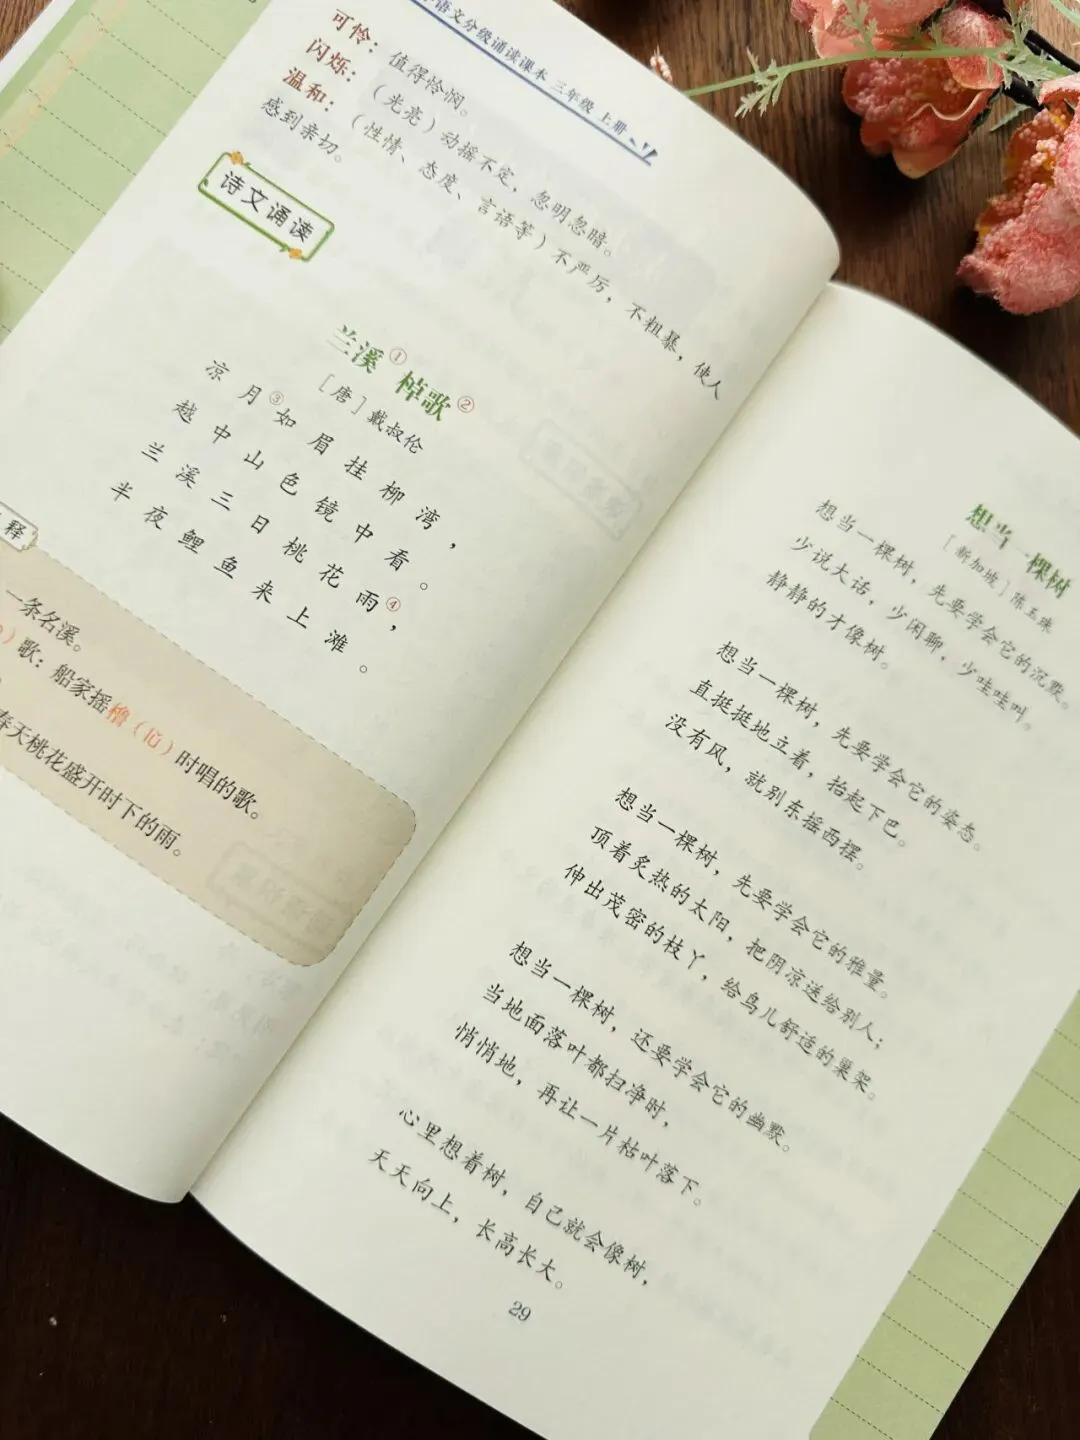 语文分级诵读课本 三年级 上册
可怜：值得怜悯。
闪烁：（光亮）动摇不定，忽明忽暗。
温和：（性情、态度、言语等）不严厉，不粗暴，使人
感到亲切。
诗文诵读
兰溪① 棹歌②
［唐］戴叔伦
凉月③如眉挂柳湾，
越中山色镜中看。
兰溪三日桃花雨④，
半夜鲤鱼来上滩。
释
一条名溪。
歌：船家摇橹（lǔ）时唱的歌。
春天桃花盛开时下的雨。
想当一棵树
［新加坡］陈玉珠
想当一棵树，先要学会它的沉默。
少说大话，少闲聊，少哇哇叫。
静静的才像树。
想当一棵树，先要学会它的姿态。
直挺挺地立着，抬起下巴。
没有风，就别东摇西摆。
想当一棵树，先要学会它的雅量。
顶着炙热的太阳，把阴凉送给别人；
伸出茂密的枝丫，给鸟儿舒适的巢架。
想当一棵树，还要学会它的幽默。
当地面落叶都扫净时，
悄悄地，再让一片枯叶落下。
心里想着树，自己就会像树，
天天向上，长高长大。
29